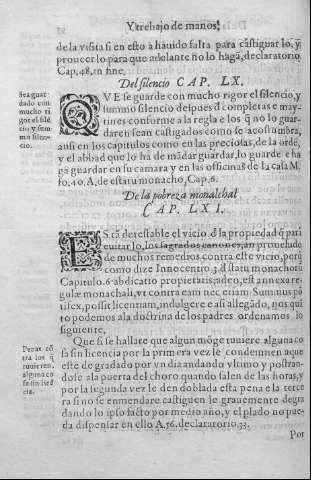 Y trebajo de manos.
de la visita si en esto a hauido falta para castiguar lo, ÿ
proueer lo para que adelante no lo haga, declaratorio
Cap, 48, in fine,
Del silencio CAP. LX.
Sea guar
dado con
mucho ri
gor el sile
cio y sum
mo silen-
cio.
QVE se guarde con mucho rigor el silencio, y
summo silencio despues đ completas e may
tines conforme a la regla e los q̃ no lo guar
daren sean castigados como se acostũbra,
ansi en los capitulos como en las preciosas, de la ordẽ,
y el abbad que lo ha de mãdar guardar, lo guarde e ha
ga guardar en su camara y en las officinas de la casa M,
fo, 40, A, de estatu monacho, Cap, 6.
De la pobreza monalchal
CAP. LXI.
ES tã detestable el vicio đ la propiedad q̃ pari
euitar lo, los sagrados canones, an prouehido
de muchos remedios contra este vicio, porq̃
como dize Innocentro 3, đ statu monachorũ
Capitulo, 6, abdicatio proprietatis, adeo, est annexa re-
gulæ monachali, vt contra eam nec etiam Summus põ
tifex, possit licentiam, indulgere e asi allegãdo, nos qui
to podemos ala doctrina de los padres ordenamos lo
siguiente,
Penas cõ
tra los q̃
tuuieren,
alguna co
sa sin licẽ
cia.
Que si se hallare que algun mõge tuuiere alguna co
sa sin licencia por la primera vez le condemnen aque
este de gradado por vn dia andando vltimo y postran-
dose ala puerta del choro quando salen de las horas, y
por la segunda vez le den doblada esta pena e la terce
ra si no se emmendare castiguen le grauemente degra
dando lo ipso facto por medio año, y el plado no pue-
da dispensar en ello A, 56, declaratorio, 33,
Por